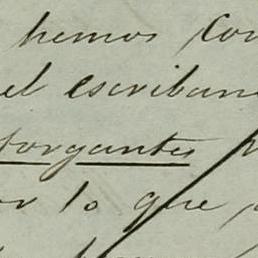 hemos con
el escriban
torgantes
or lo que